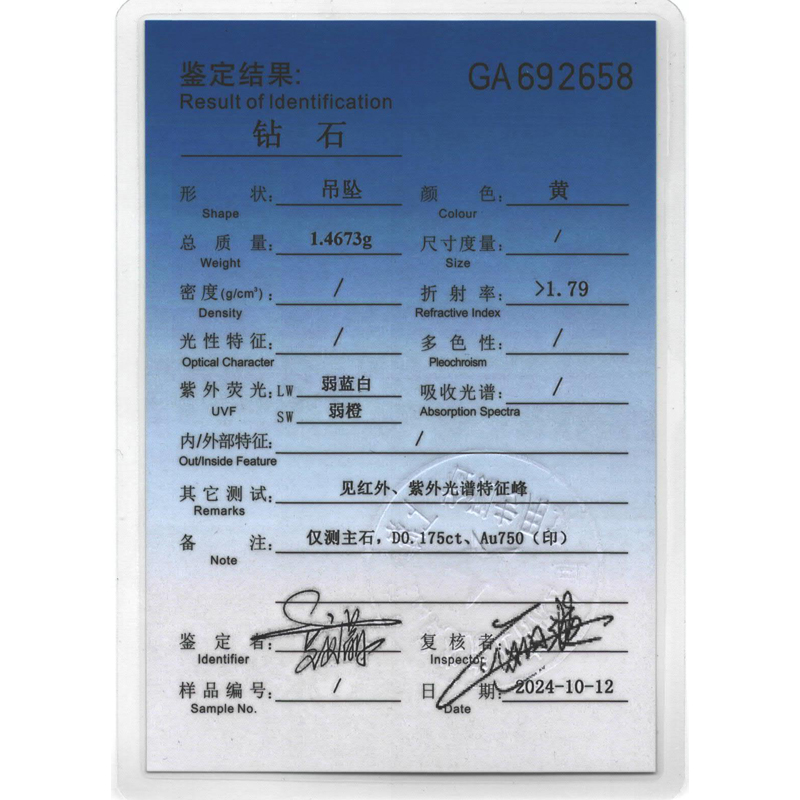 鉴定结果: GA692658
Result of Identification
钻 石
形 状: 吊坠 颜 色: 黄
Shape Colour
总 质 量: 1.4673g 尺寸度量: /
Weight Size
密度(g/cm³): / 折 射 率: >1.79
Density Refractive Index
光性特征: / 多 色 性: /
Optical Character Pleochroism
紫外荧光: LW 弱蓝白 吸收光谱: /
UVF SW 弱橙 Absorption Spectra
内/外部特征: /
Out/Inside Feature
其它测试: 见红外、紫外光谱特征峰
Remarks
备 注: 仅测主石,D0.175ct、Au750(印)
Note
鉴 定 者: 复 核 者:
Identifier Inspector
样品编号: / 日 期: 2024-10-12
Sample No. Date